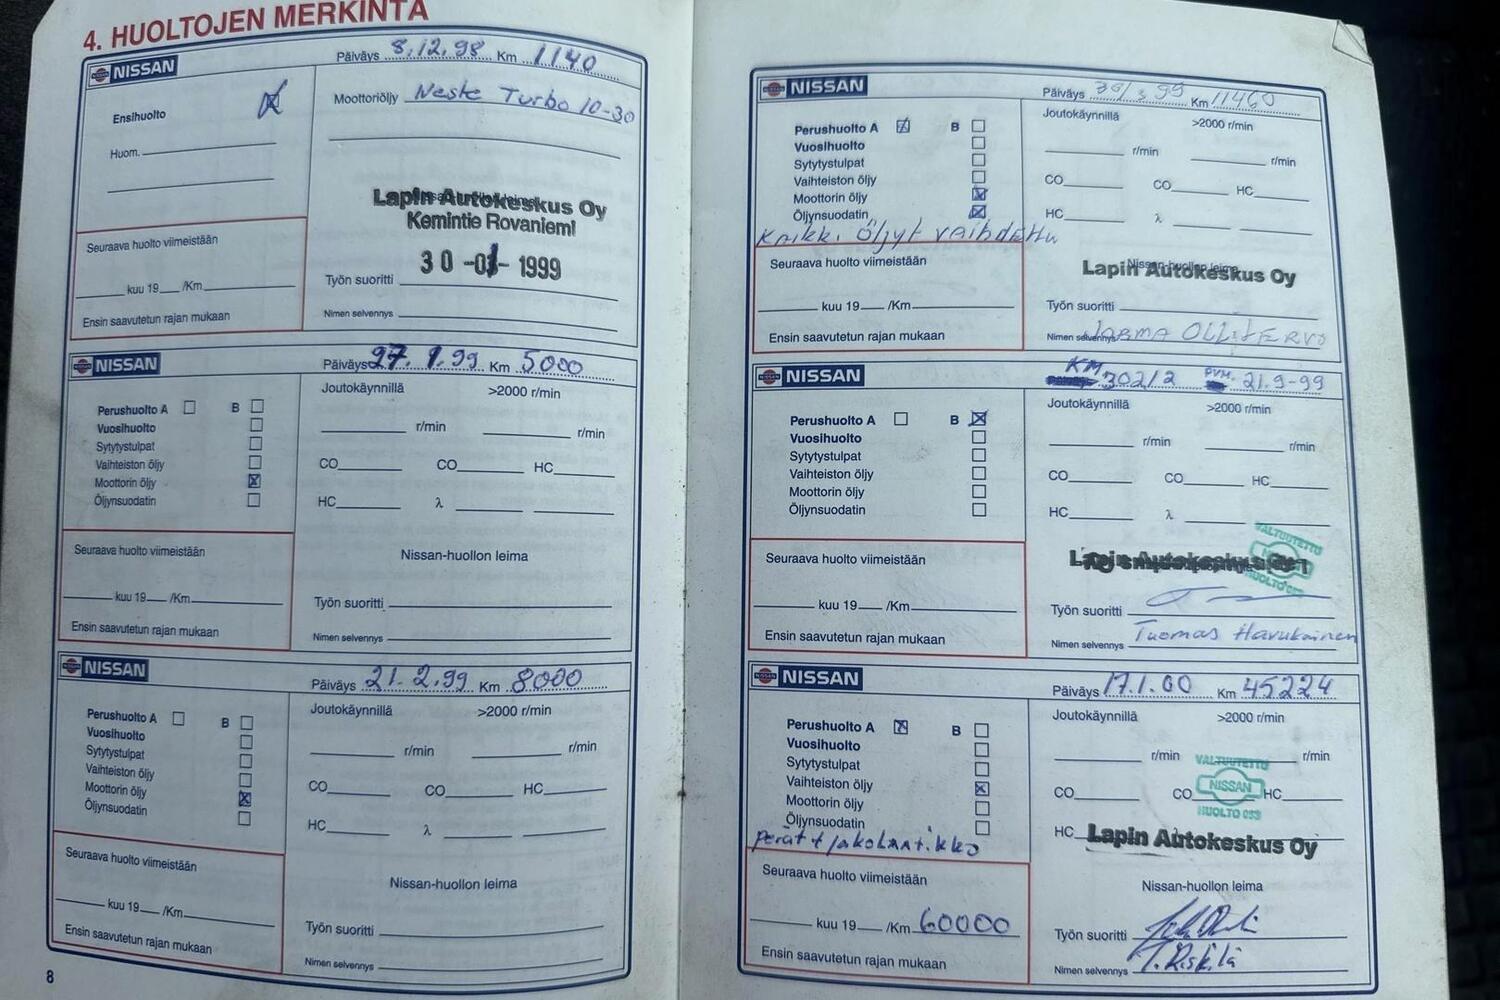 4. HUOLTOJEN MERKINTÄ
NISSAN
Päiväys 8.12.98 Km 1140
Ensihuolto
Moottoriöljy Neste Turbo 10-30
Huom.
Lapin Autokeskus Oy
Kemintie Rovaniemi
30 -01- 1999
Seuraava huolto viimeistään
kuu 19 /Km
Ensin saavutetun rajan mukaan
Työn suoritti
Nimen selvennys
NISSAN
Päiväys 27.1.99 Km 5000
Perushuolto A B
Vuosihuolto
Sytytystulpat
Vaihteiston öljy
Moottorin öljy
Öljynsuodatin
Joutokäynnillä >2000 r/min
r/min r/min
CO CO HC
HC λ
Seuraava huolto viimeistään
kuu 19 /Km
Ensin saavutetun rajan mukaan
Nissan-huollon leima
Työn suoritti
Nimen selvennys
NISSAN
Päiväys 21.2.99 Km 8000
Perushuolto A B
Vuosihuolto
Sytytystulpat
Vaihteiston öljy
Moottorin öljy
Öljynsuodatin
Joutokäynnillä >2000 r/min
r/min r/min
CO CO HC
HC λ
Seuraava huolto viimeistään
kuu 19 /Km
Ensin saavutetun rajan mukaan
Nissan-huollon leima
Työn suoritti
Nimen selvennys
8
NISSAN
Päiväys 30/3 99 Km 11460
Perushuolto A B
Vuosihuolto
Sytytystulpat
Vaihteiston öljy
Moottorin öljy
Öljynsuodatin
Kaikki öljyt vaihdettu
Joutokäynnillä >2000 r/min
r/min r/min
CO CO HC
HC λ
Seuraava huolto viimeistään
kuu 19 /Km
Ensin saavutetun rajan mukaan
Nissan-huollon leima
Lapin Autokeskus Oy
Työn suoritti
Nimen selvennys JORMA OLLITERVO
NISSAN
KM. 30212 PVM. 21.9-99
Perushuolto A B
Vuosihuolto
Sytytystulpat
Vaihteiston öljy
Moottorin öljy
Öljynsuodatin
Joutokäynnillä >2000 r/min
r/min r/min
CO CO HC
HC λ
Seuraava huolto viimeistään
kuu 19 /Km
Ensin saavutetun rajan mukaan
VALTUUTETTU
NISSAN
HUOLTO 053
Lapin Autokeskus Oy
Työn suoritti
Nimen selvennys Tuomas Havukainen
NISSAN
Päiväys 17.1.00 Km 45224
Perushuolto A B
Vuosihuolto
Sytytystulpat
Vaihteiston öljy
Moottorin öljy
Öljynsuodatin
perät + jakolaatikko
Joutokäynnillä >2000 r/min
r/min r/min
CO CO HC
HC
VALTUUTETTU
NISSAN
HUOLTO 053
Lapin Autokeskus Oy
Seuraava huolto viimeistään
kuu 19 /Km 60000
Ensin saavutetun rajan mukaan
Nissan-huollon leima
Työn suoritti
Nimen selvennys